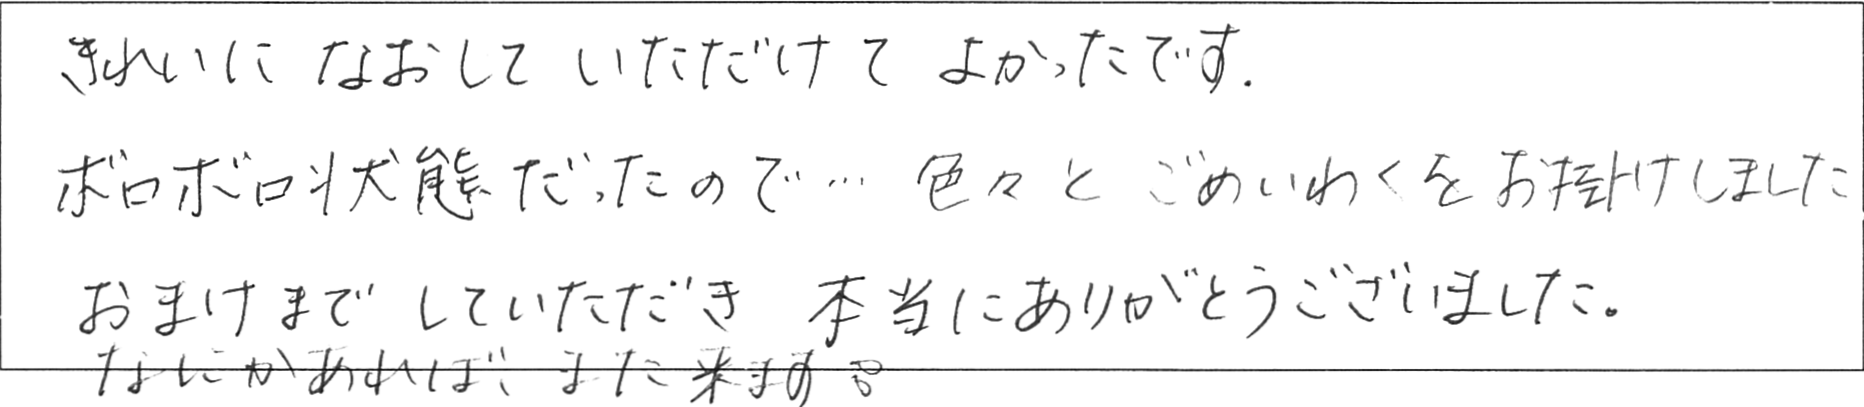 きれいに なおして いただけて よかったです.
ボロボロ状態だったので… 色々と ごめいわくをお掛けしました
おまけまで していただき 本当にありがとうございました。
なにかあれば、また来ます。